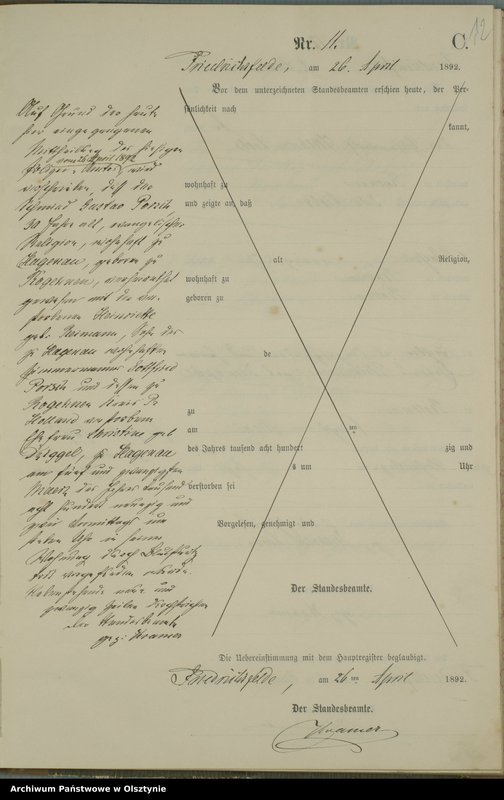 12
Nr. 11. C.
Friedrichsfelde, am 26. April 1892.
Vor dem unterzeichneten Standesbeamten erschien heute, der Per-
sönlichkeit nach
kannt,
wohnhaft zu
und zeigte an, daß
alt Religion,
wohnhaft zu
geboren zu
de
zu
am ten
des Jahres tausend acht hundert zig und
s um Uhr
verstorben sei
Vorgelesen, genehmigt und
Der Standesbeamte.
Auf Grund der heute
hier eingegangenen
Mittheilung des hiesigen
vom 26 April 1892
wird
daß der
Schmied Gustav
30 Jahre alt, evangelischer
Religion, wohnhaft zu
Hagenau, geboren zu
Rogehnen, verheirathet
gewesen mit der ver-
storbenen Henriette
geb. Neimann, Sohn des
zu Hagenau wohnhaften
Zimmermanns Gottfried
und dessen zu
Rogehnen Kreis Pr.
Holland verstorbenen
Ehefrau Christine geb.
zu Hagenau
am fünf und zwanzigsten
März des Jahres tausend
acht hundert neunzig und
zwei Vormittags um
sieben Uhr in seiner
Wohnung durch
todt vorgefunden worden.
Nebenstehende neun und
zwanzig Zeilen Druckschrift
Der Standesbeamte
gez: Kramer
Die Uebereinstimmung mit dem Hauptregister beglaubigt.
Friedrichsfelde, am 26 ten April 1892.
Der Standesbeamte.
Kramer
Archiwum Państwowe w Olsztynie